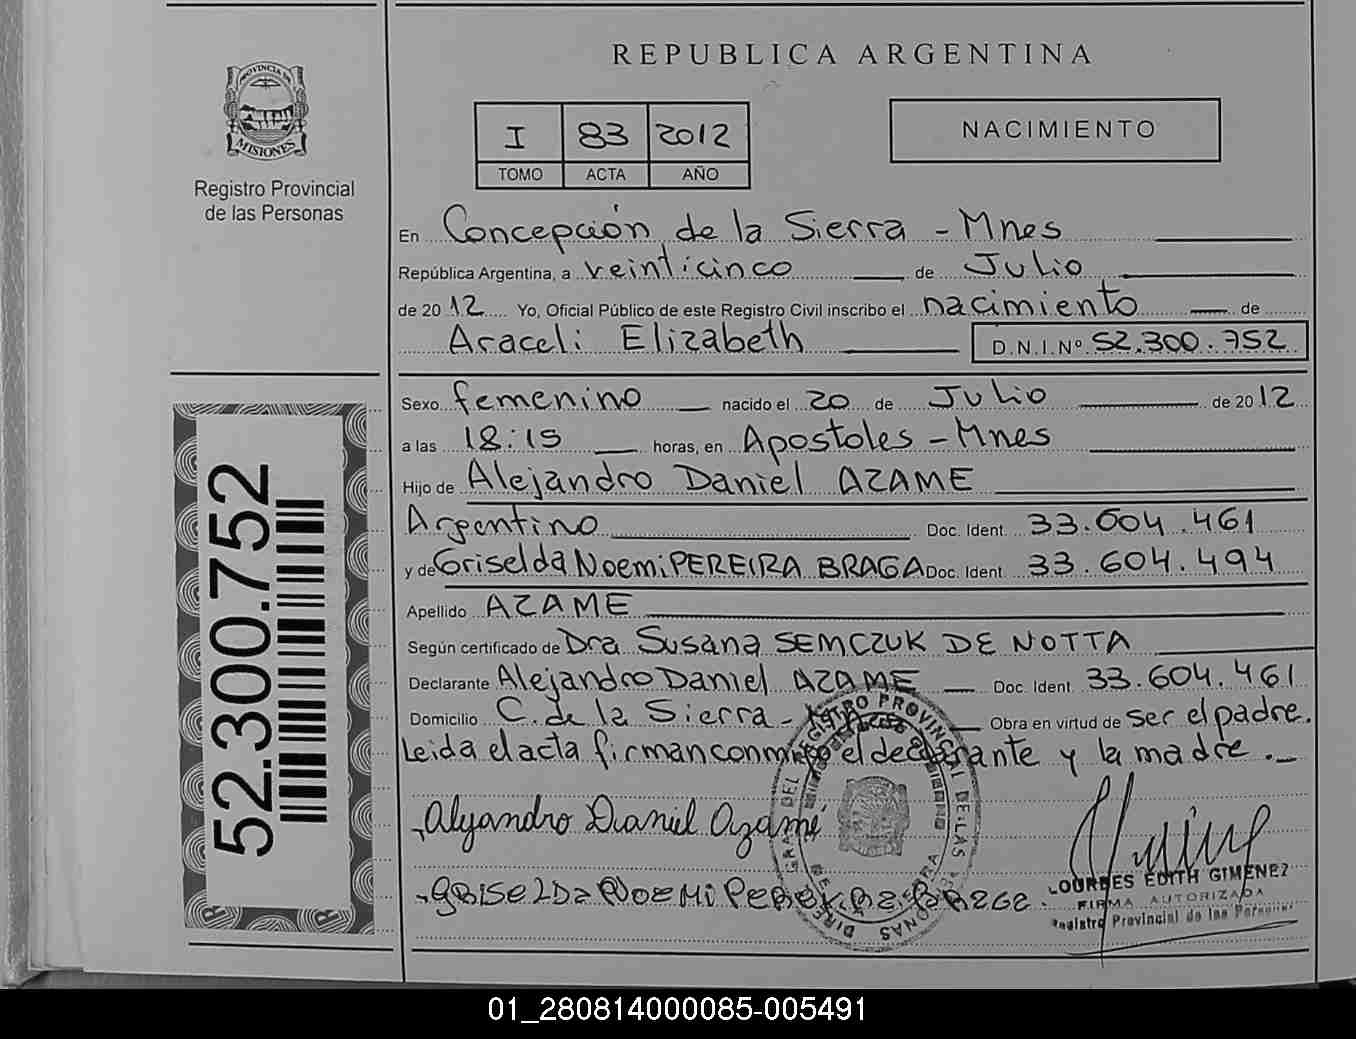 PROVINCIA DE
MISIONES
Registro Provincial
de las Personas
52.300.752
REPUBLICA ARGENTINA
I 83 2012
TOMO ACTA AÑO
NACIMIENTO
En Concepción de la Sierra - Mnes
República Argentina, a veinticinco de Julio
de 2012 Yo, Oficial Público de este Registro Civil inscribo el nacimiento de
Araceli Elizabeth D.N.I.Nº 52.300.752
Sexo femenino nacido el 20 de Julio de 2012
a las 18:15 horas, en Apostoles - Mnes
Hijo de Alejandro Daniel AZAME
Argentino Doc. Ident. 33.604.461
y de Griselda Noemi PEREIRA BRAGA Doc. Ident. 33.604.494
Apellido AZAME
Según certificado de Dra Susana SEMCZUK DE NOTTA
Declarante Alejandro Daniel AZAME Doc. Ident. 33.604.461
Domicilio C. de la Sierra - Mnes Obra en virtud de ser el padre.
Leida el acta firman conmigo el declarante y la madre.
Alejandro Daniel Azamé
GRISELDA NOEMI PEREIRA BRAGA.
LOURDES EDITH GIMENEZ
FIRMA AUTORIZADA
Registro Provincial de las Personas
01_280814000085-005491